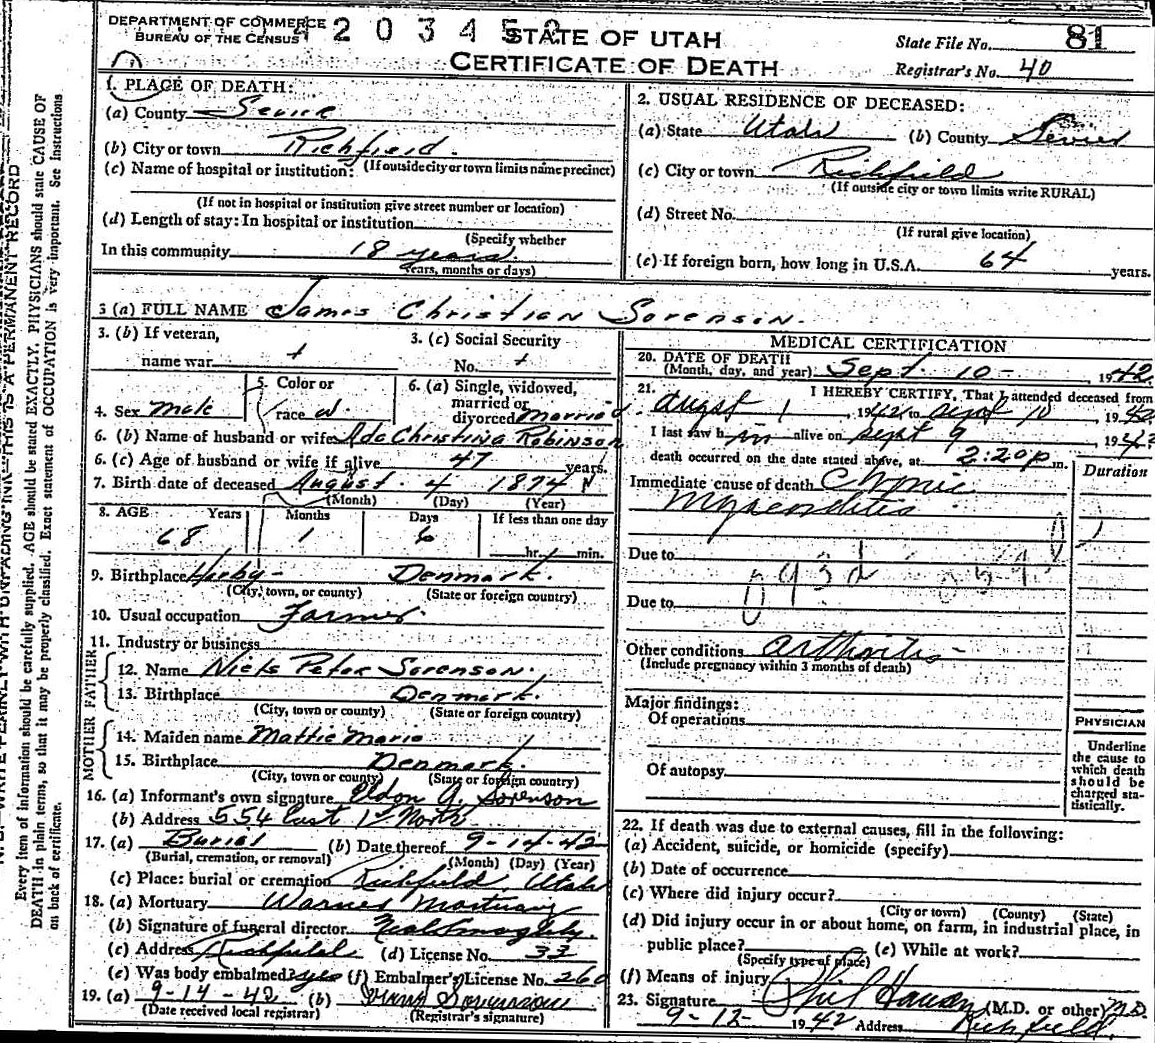 DEPARTMENT OF COMMERCE
BUREAU OF THE CENSUS
4 2 0 3 4 5 2
STATE OF UTAH
CERTIFICATE OF DEATH
State File No. 81
Registrar's No. 40
1. PLACE OF DEATH:
(a) County Sevier
(b) City or town Richfield.
(If outside city or town limits name precinct)
(c) Name of hospital or institution:
(If not in hospital or institution give street number or location)
(d) Length of stay: In hospital or institution
(Specify whether
In this community 18 years
years, months or days)
2. USUAL RESIDENCE OF DECEASED:
(a) State Utah (b) County Sevier
(c) City or town Richfield
(If outside city or town limits write RURAL)
(d) Street No.
(If rural give location)
(e) If foreign born, how long in U.S.A. 64 years.
3 (a) FULL NAME James Christian Sorenson.
3. (b) If veteran, name war
3. (c) Social Security No.
4. Sex male
5. Color or race w.
6. (a) Single, widowed, married or divorced Married.
6. (b) Name of husband or wife Ada Christina Robinson
6. (c) Age of husband or wife if alive 47 years.
7. Birth date of deceased August 4 1874
(Month) (Day) (Year)
8. AGE Years Months Days If less than one day
68 1 6 hr. min.
9. Birthplace Denmark.
(City, town, or county) (State or foreign country)
10. Usual occupation Farmer.
11. Industry or business
FATHER
12. Name Niels Peter Sorenson.
13. Birthplace Denmark.
(City, town or county) (State or foreign country)
MOTHER
14. Maiden name Mattie Marie
15. Birthplace Denmark.
(City, town or county) (State or foreign country)
16. (a) Informant's own signature Eldon G. Sorenson
(b) Address 554 East 1st North
17. (a) Burial (b) Date thereof 9-14-42
(Burial, cremation, or removal) (Month) (Day) (Year)
(c) Place: burial or cremation Richfield, Utah
18. (a) Mortuary Mortuary
(b) Signature of funeral director
(c) Address Richfield (d) License No. 33
(e) Was body embalmed? yes (f) Embalmer's License No. 260
19. (a) 9-14-42 (b) Sorenson
(Date received local registrar) (Registrar's signature)
MEDICAL CERTIFICATION
20. DATE OF DEATH
(Month, day, and year) Sept. 10 - , 1942.
21. I HEREBY CERTIFY, That I attended deceased from
August 1, 1942 to Sept 10 1942.
I last saw him alive on Sept 9 1942
death occurred on the date stated above, at 2:20 p m.
Duration
Immediate cause of death Chronic
Due to
Due to
Other conditions arthritis -
(Include pregnancy within 3 months of death)
Major findings:
Of operations
Of autopsy
PHYSICIAN
Underline
the cause to
which death
should be
charged sta-
tistically.
22. If death was due to external causes, fill in the following:
(a) Accident, suicide, or homicide (specify)
(b) Date of occurrence
(c) Where did injury occur?
(City or town) (County) (State)
(d) Did injury occur in or about home, on farm, in industrial place, in
public place? (e) While at work?
(Specify type of place)
(f) Means of injury
23. Signature (M.D. or other) M.D.
9-12- 1942 Address Richfield.
N. B. WRITE PLAINLY WITH UNFADING INK—THIS IS A PERMANENT RECORD
Every item of information should be carefully supplied. AGE should be stated EXACTLY. PHYSICIANS should state CAUSE OF
DEATH in plain terms, so that it may be properly classified. Exact statement of OCCUPATION is very important. See Instructions
on back of certificate.